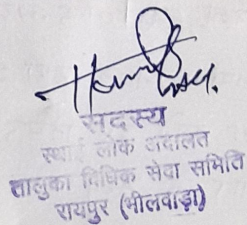 सदस्य
स्थाई लोक अदालत
तालुका विधिक सेवा समिति
रायपुर (भीलवाड़ा)